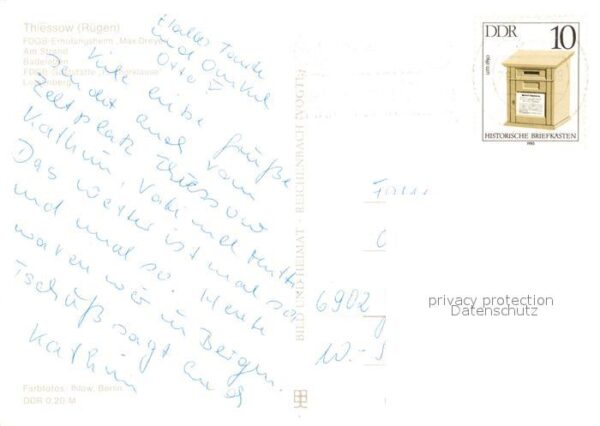 Thiessow (Rügen)
FDGB-Erholungsheim „Max Dreyer"
Am Strand
Badeleben
FDGB-Gaststätte
DDR
10
um 1896
HISTORISCHE BRIEFKÄSTEN
1985
Hallo Tante
und Onkel
Otto!
Viele liebe Grüße
sendet euch vom
Zeltplatz Thiessow
Kathrin, Vati und Mutti
Das Wetter ist mal so
und mal so. Heute
waren wir in Bergen.
Tschüß sagt euch
Kathrin
BILD UND HEIMAT · REICHENBACH (VOGTL)
6902
privacy protection
Datenschutz
Farbfotos: Ihlow, Berlin
DDR 0,20 M